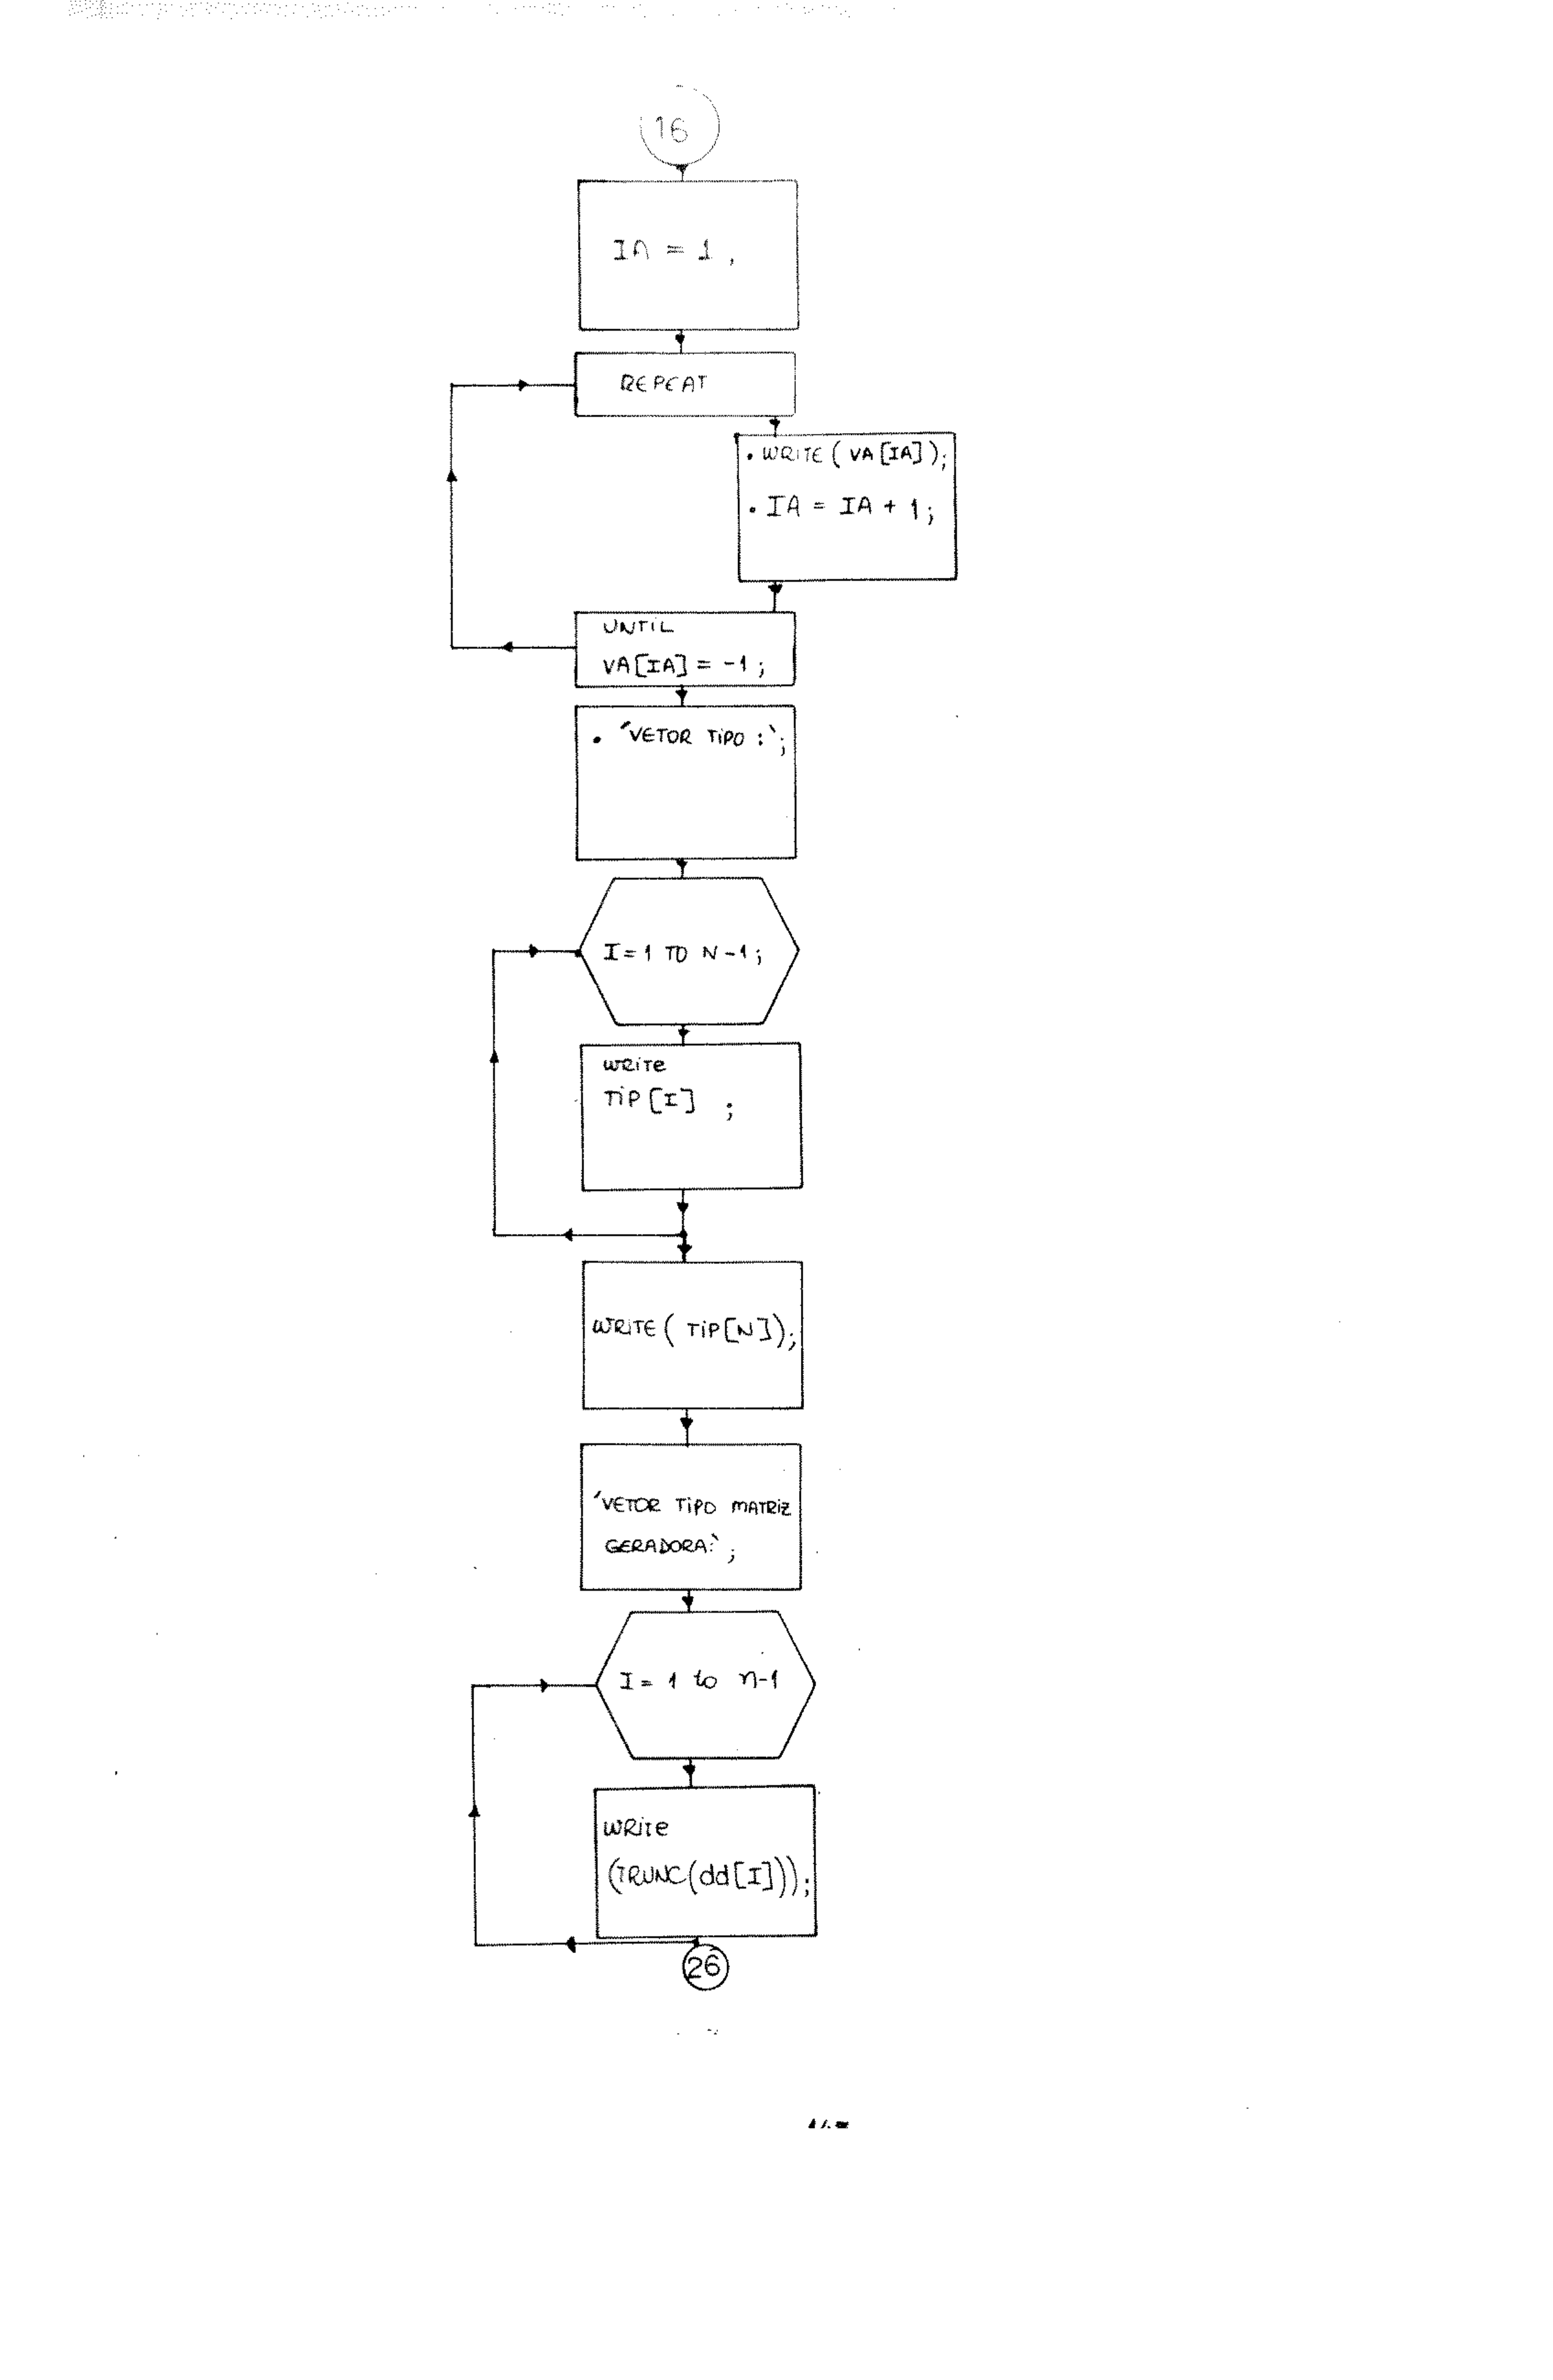 16
IA = 1,
REPEAT
. WRITE ( VA [IA] );
. IA = IA + 1;
UNTIL
VA[IA] = -1 ;
. 'VETOR TIPO :`;
I=1 TO N-1;
WRITE
TIP [I] ;
WRITE ( TIP[N]);
'VETOR TIPO MATRIZ
GERADORA:`;
I = 1 to n-1
WRITE
(TRUNC(dd[I]));
26